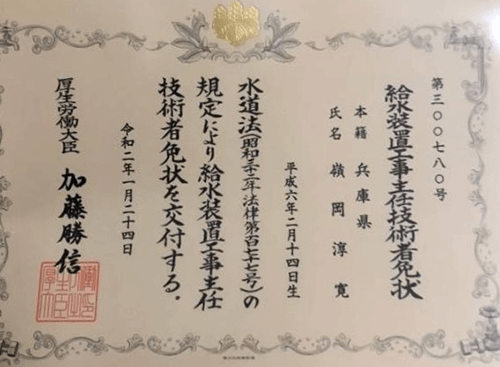 第三〇〇七八〇号
給水装置工事主任技術者免状
本籍 兵庫県
氏名 嶺岡淳寛
平成六年二月十四日生
水道法(昭和三十二年法律第百七十七号)の
規定により給水装置工事主任
技術者免状を交付する。
令和二年一月二十四日
厚生労働大臣 加藤勝信